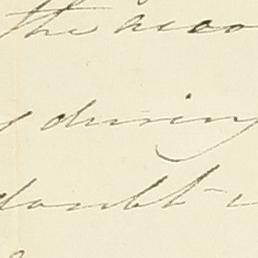 the acco
during
doubt